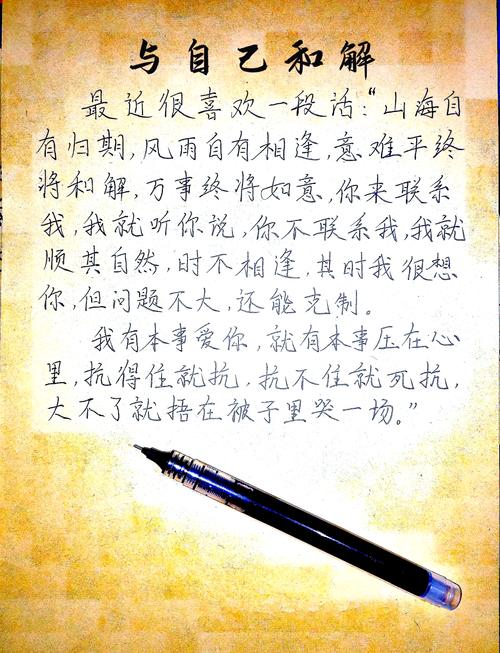 与自己和解
最近很喜欢一段话:“山海自
有归期,风雨自有相逢,意难平终
将和解,万事终将如意,你来联系
我,我就听你说,你不联系我,我就
顺其自然,时不相逢,其时我很想
你,但问题不大,还能克制。
我有本事爱你,就有本事压在心
里,抗得住就抗,抗不住就死抗,
大不了就捂在被子里哭一场。”